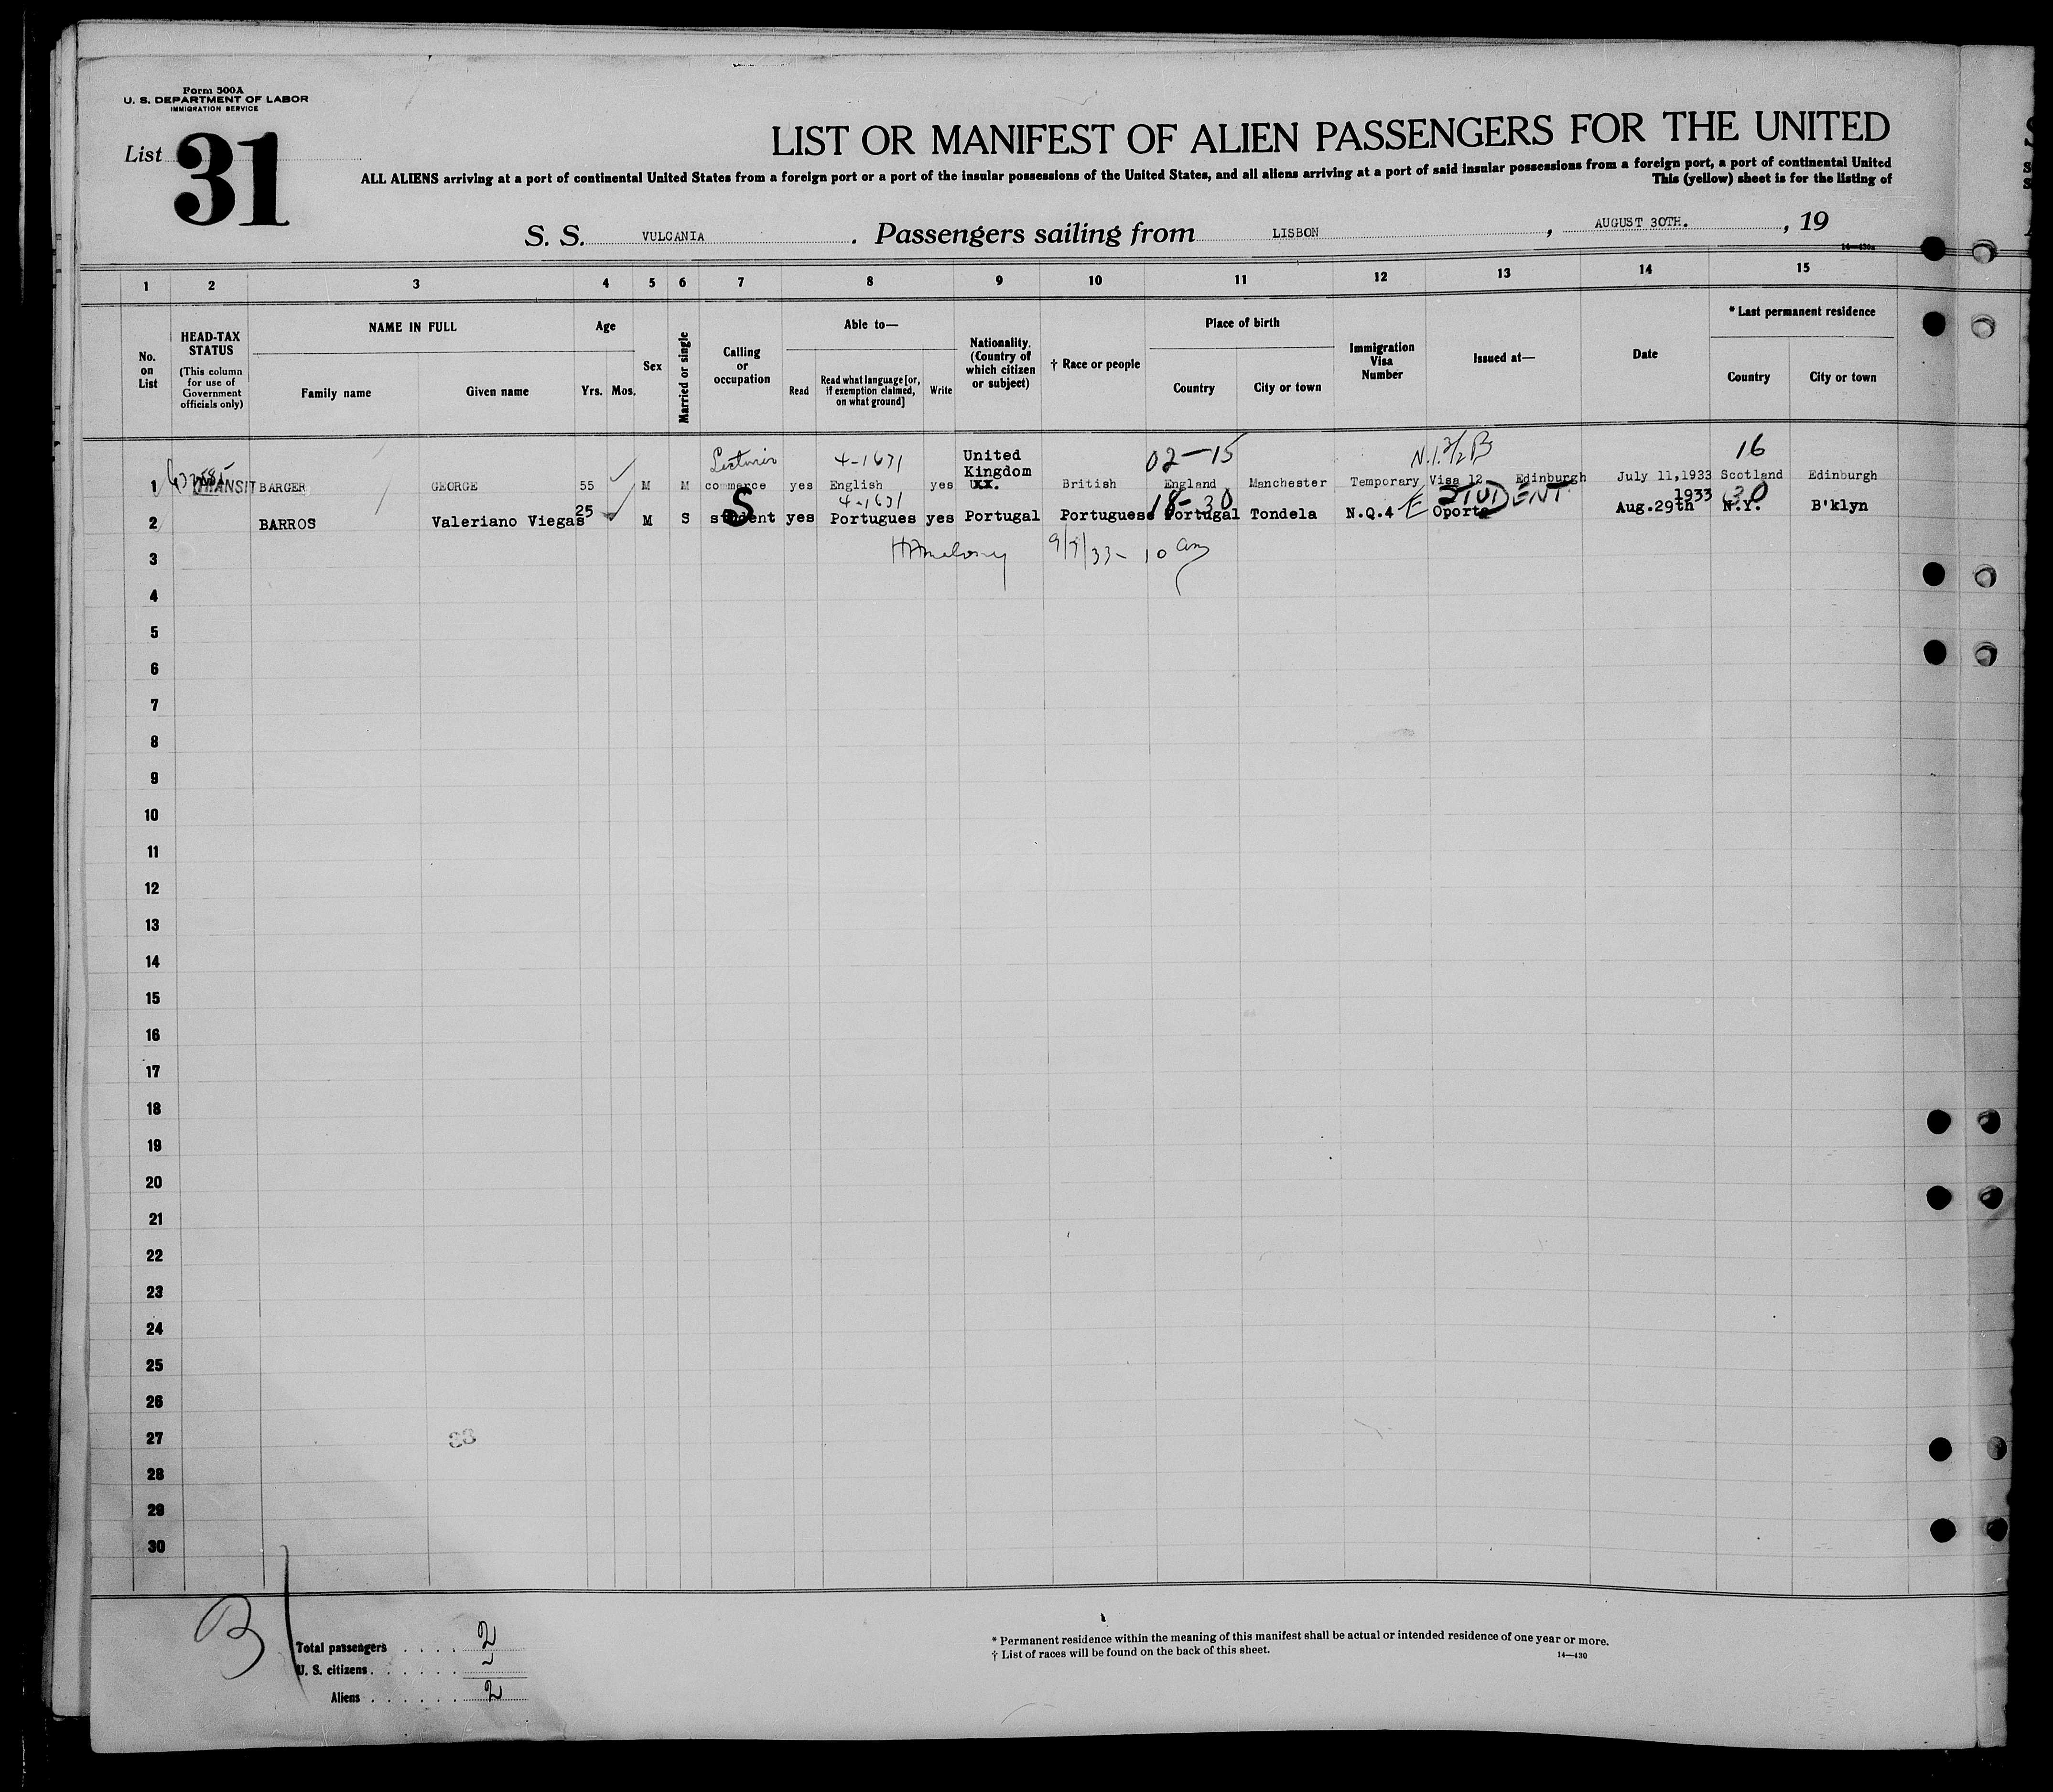 Form 500A
U. S. DEPARTMENT OF LABOR
IMMIGRATION SERVICE
List 31
LIST OR MANIFEST OF ALIEN PASSENGERS FOR THE UNITED
ALL ALIENS arriving at a port of continental United States from a foreign port or a port of the insular possessions of the United States, and all aliens arriving at a port of said insular possessions from a foreign port, a port of continental United
This (yellow) sheet is for the listing of
S. S. VULCANIA . Passengers sailing from LISBON , AUGUST 30TH. , 19
14—430a
1 2 3 4 5 6 7 8 9 10 11 12 13 14 15
No. on List
HEAD-TAX STATUS
(This column for use of Government officials only)
NAME IN FULL
Family name Given name
Age
Yrs. Mos.
Sex
Married or single
Calling or occupation
Able to—
Read
Read what language [or, if exemption claimed, on what ground]
Write
Nationality. (Country of which citizen or subject)
† Race or people
Place of birth
Country City or town
Immigration Visa Number
Issued at—
Date
* Last permanent residence
Country City or town
Lecturer 4-1671 United Kingdom 02-15 16
1 TRANSIT BARGER GEORGE 55 M M commerce yes English yes British England Manchester Temporary Visa 12 Edinburgh July 11,1933 Scotland Edinburgh
4-1631 18-30 STUDENT 1933 30
2 BARROS Valeriano Viegas 25 M S student S yes Portugues yes Portugal Portuguese Portugal Tondela N.Q.4 E Oporto Aug.29th N.Y. B'klyn
9/7/33- 10 am
3
4
5
6
7
8
9
10
11
12
13
14
15
16
17
18
19
20
21
22
23
24
25
26
27
28
29
30
33
B
Total passengers . . . . 2
U. S. citizens . . . . . .
Aliens . . . . . . 2
* Permanent residence within the meaning of this manifest shall be actual or intended residence of one year or more.
† List of races will be found on the back of this sheet.
14—430